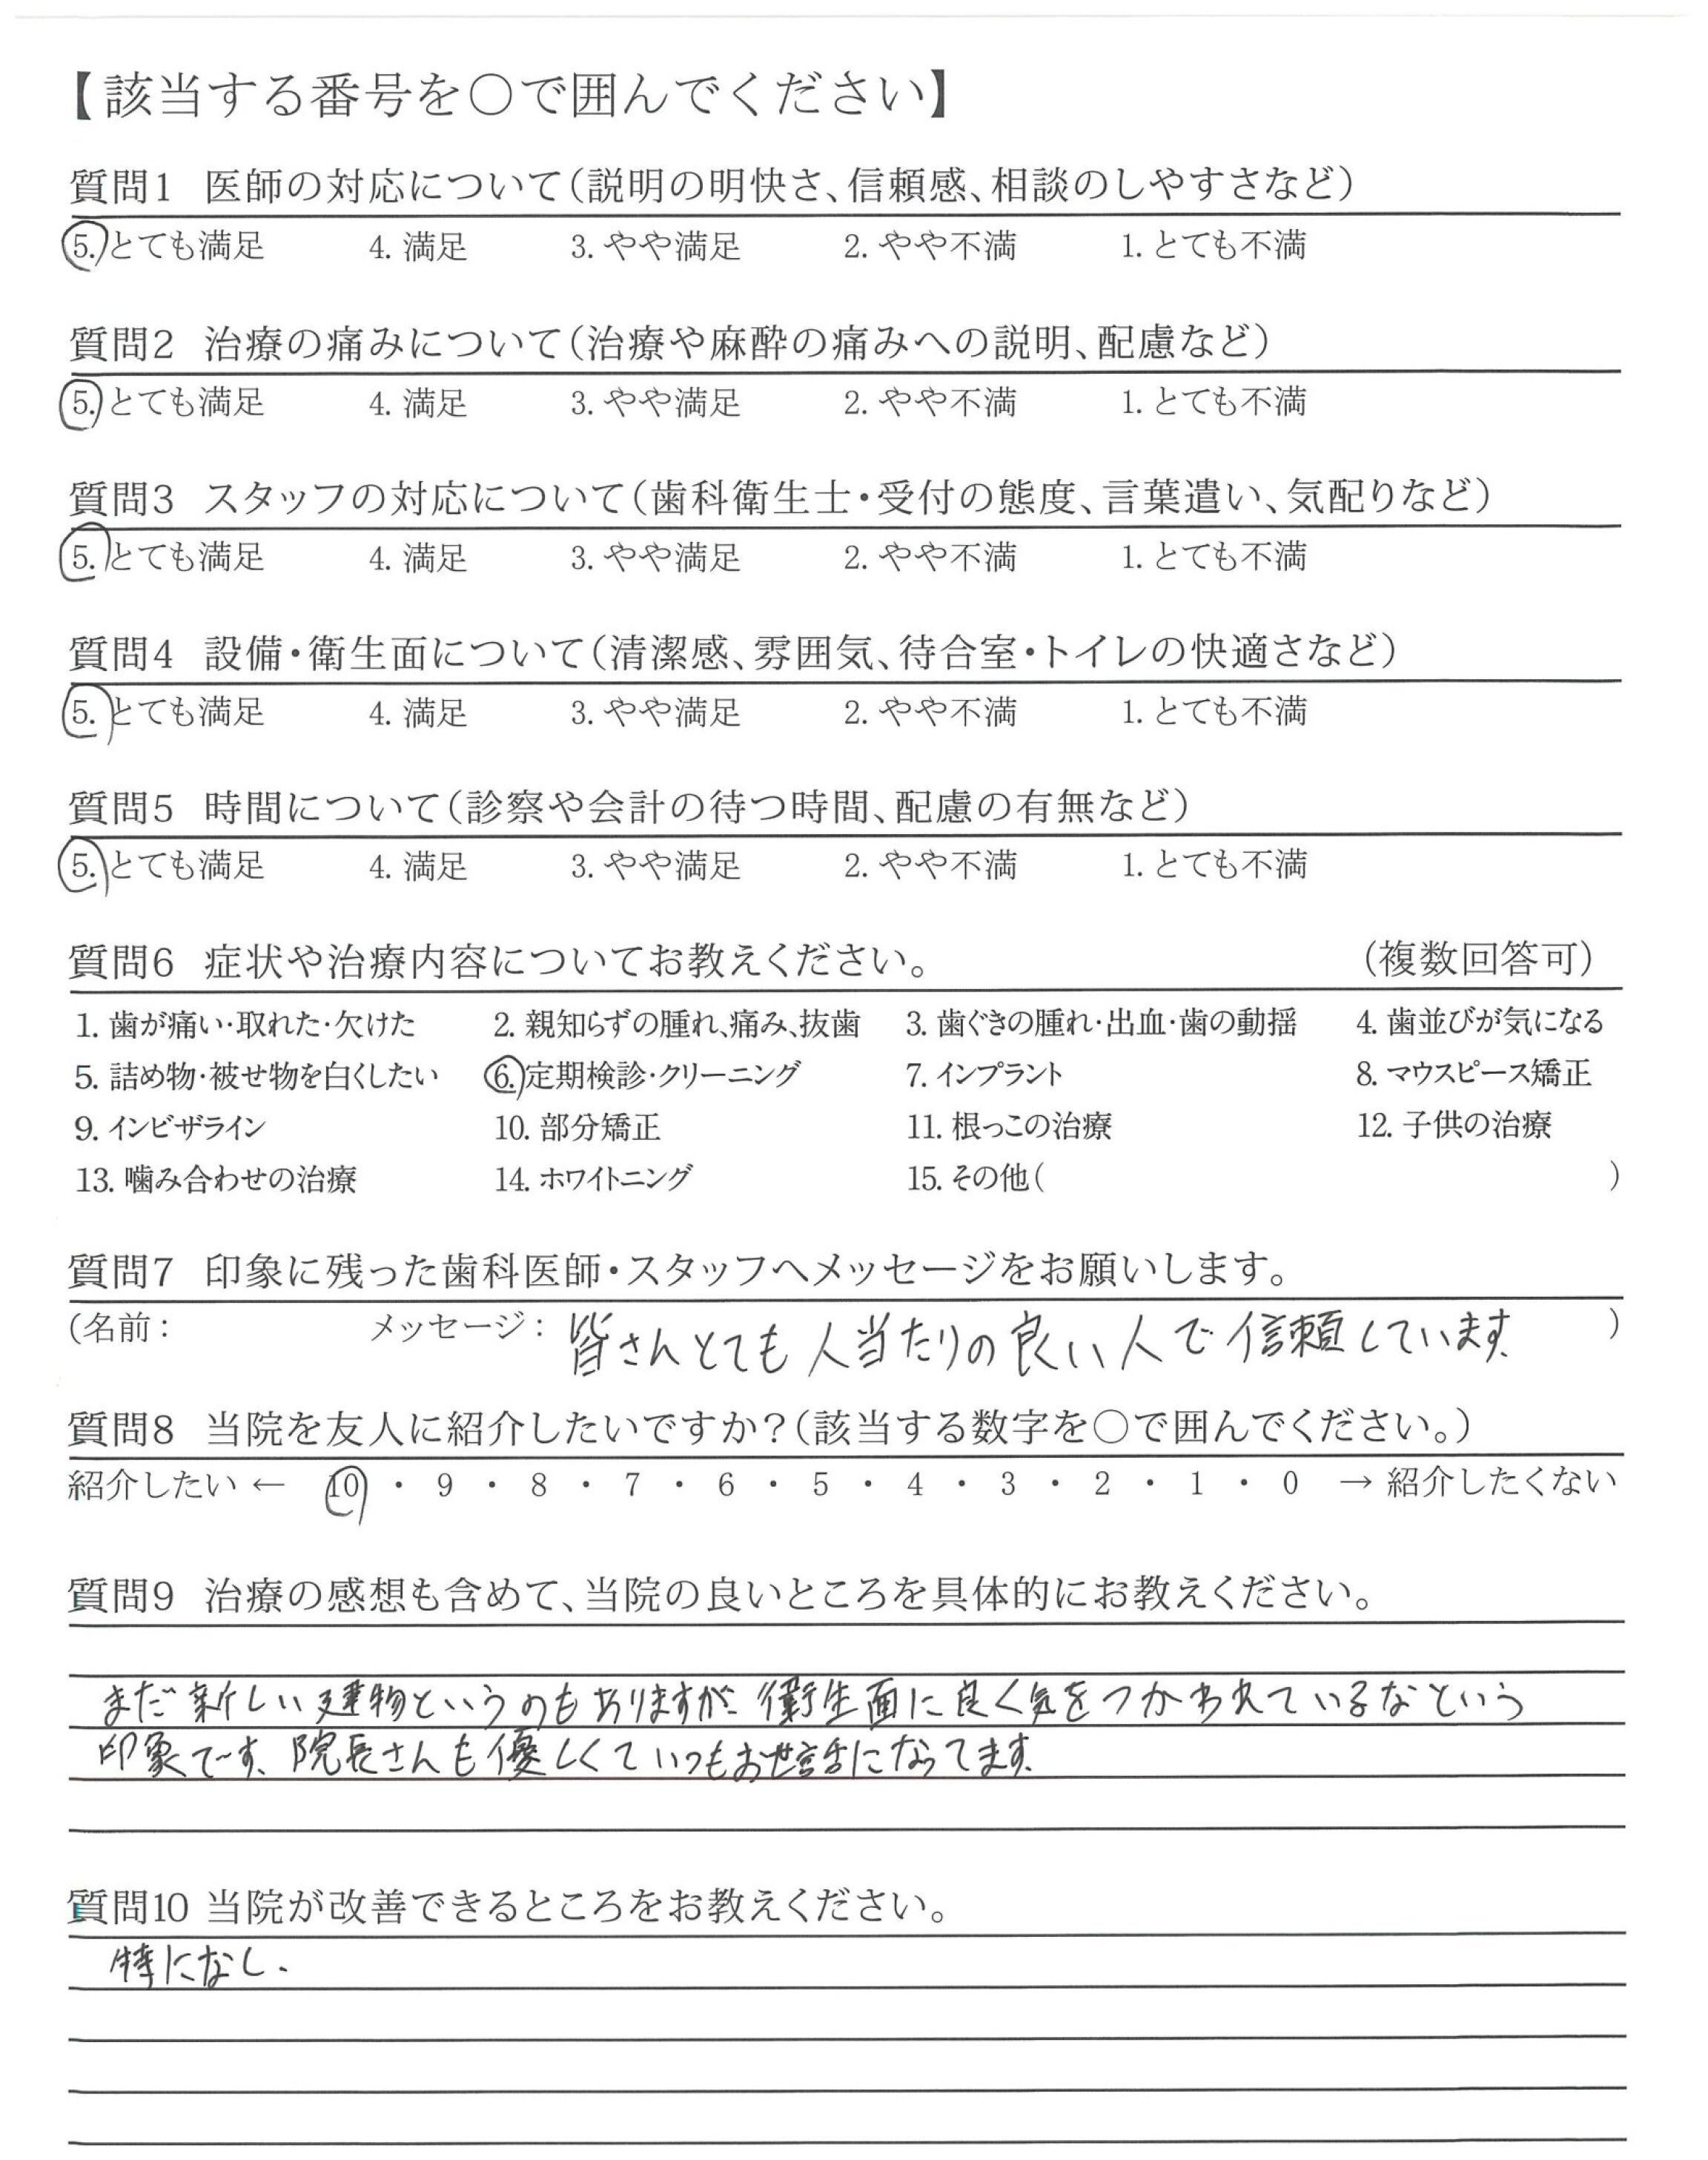 【該当する番号を〇で囲んでください】
質問1 医師の対応について(説明の明快さ、信頼感、相談のしやすさなど)
5. とても満足 4. 満足 3. やや満足 2. やや不満 1. とても不満
質問2 治療の痛みについて(治療や麻酔の痛みへの説明、配慮など)
5. とても満足 4. 満足 3. やや満足 2. やや不満 1. とても不満
質問3 スタッフの対応について(歯科衛生士・受付の態度、言葉遣い、気配りなど)
5. とても満足 4. 満足 3. やや満足 2. やや不満 1. とても不満
質問4 設備・衛生面について(清潔感、雰囲気、待合室・トイレの快適さなど)
5. とても満足 4. 満足 3. やや満足 2. やや不満 1. とても不満
質問5 時間について(診察や会計の待つ時間、配慮の有無など)
5. とても満足 4. 満足 3. やや満足 2. やや不満 1. とても不満
質問6 症状や治療内容についてお教えください。 (複数回答可)
1. 歯が痛い・取れた・欠けた 2. 親知らずの腫れ、痛み、抜歯 3. 歯ぐきの腫れ・出血・歯の動揺 4. 歯並びが気になる
5. 詰め物・被せ物を白くしたい 6. 定期検診・クリーニング 7. インプラント 8. マウスピース矯正
9. インビザライン 10. 部分矯正 11. 根っこの治療 12. 子供の治療
13. 噛み合わせの治療 14. ホワイトニング 15. その他( )
質問7 印象に残った歯科医師・スタッフへメッセージをお願いします。
(名前: メッセージ: 皆さんとても人当たりの良い人で信頼しています。 )
質問8 当院を友人に紹介したいですか?(該当する数字を〇で囲んでください。)
紹介したい ← 10 ・ 9 ・ 8 ・ 7 ・ 6 ・ 5 ・ 4 ・ 3 ・ 2 ・ 1 ・ 0 → 紹介したくない
質問9 治療の感想も含めて、当院の良いところを具体的にお教えください。
まだ新しい建物というのもありますが、衛生面に良く気をつかわれているなという
印象です。院長さんも優しくていつもお世話になってます。
質問10 当院が改善できるところをお教えください。
特になし.